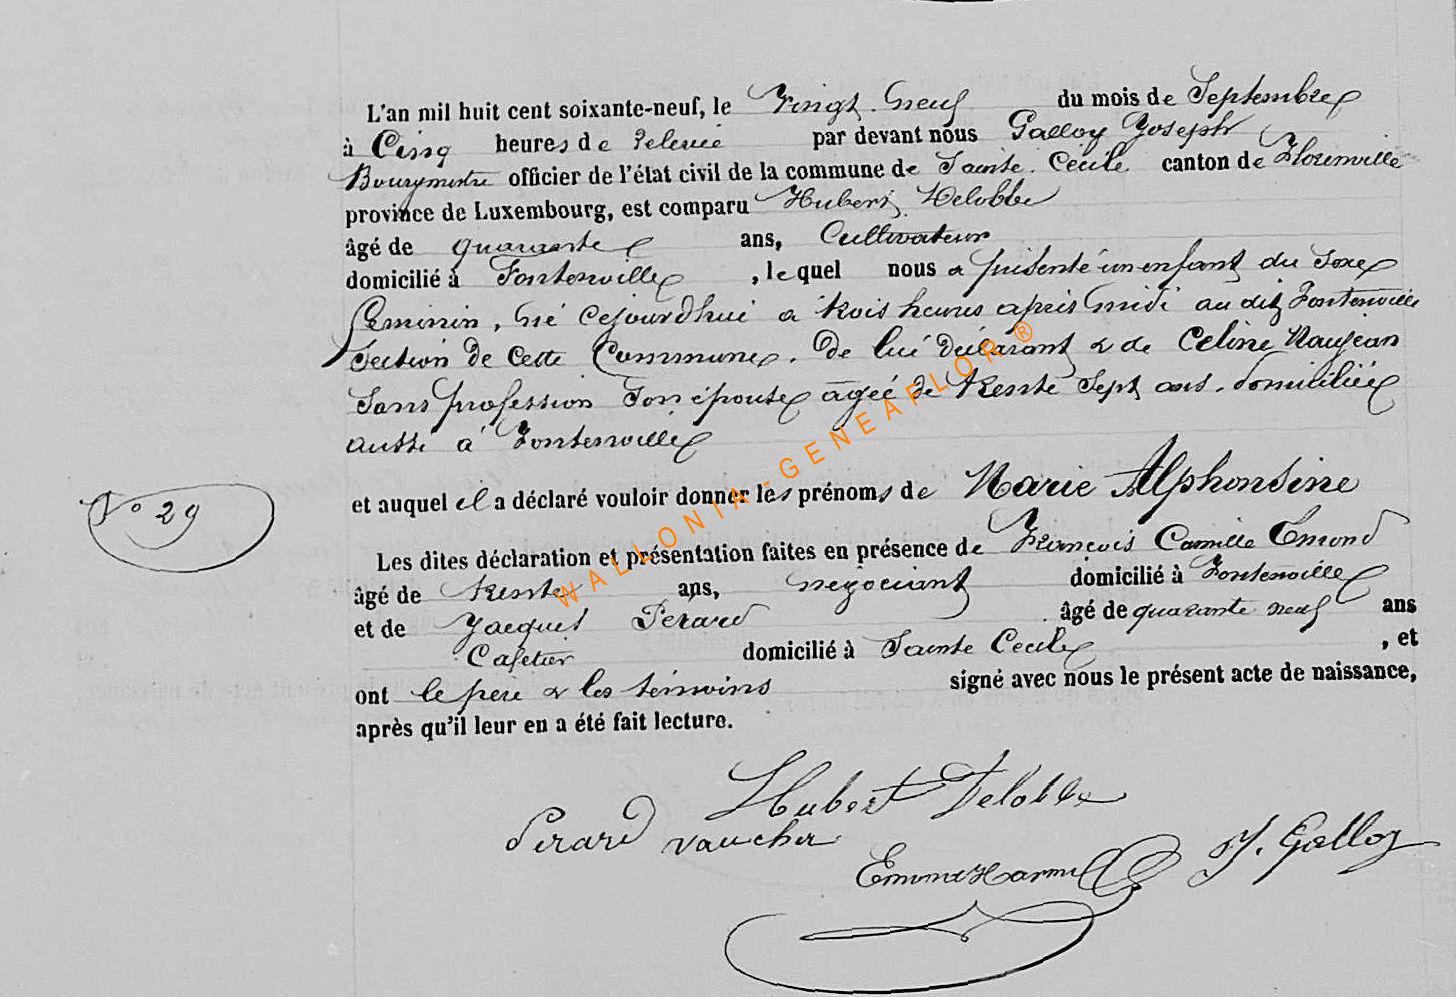 L'an mil huit cent soixante-neuf, le Vingt Neuf du mois de Septembre
à Cinq heures de Relevée par devant nous Galloy Joseph
Bourgmestre officier de l'état civil de la commune de Sainte Cécile canton de Florenville
province de Luxembourg, est comparu Hubert Delobbe
âgé de quarante ans, Cultivateur
domicilié à Fontenoille, lequel nous a présenté un enfant du Sexe
feminin, né cejourdhui a trois heures après midi au dit Fontenoille
Section de cette Commune. De lui déclarant & de Celine Naujean
Sans profession Son épouse agée de trente Sept ans. domiciliée
aussi à Fontenoille
et auquel il a déclaré vouloir donner les prénoms de Marie Alphonsine
N° 29
Les dites déclaration et présentation faites en présence de François Camille Emond
âgé de trente ans, negociant domicilié à Fontenoille
et de Jacques Perard âgé de quarante neuf ans
Cafetier domicilié à Sainte Cecile, et
ont le père & les témoins signé avec nous le présent acte de naissance,
après qu'il leur en a été fait lecture.
Hubert Delobbe
Perard Vaucher
J. Galloy
WALLONIA-GENEAFLOR ®